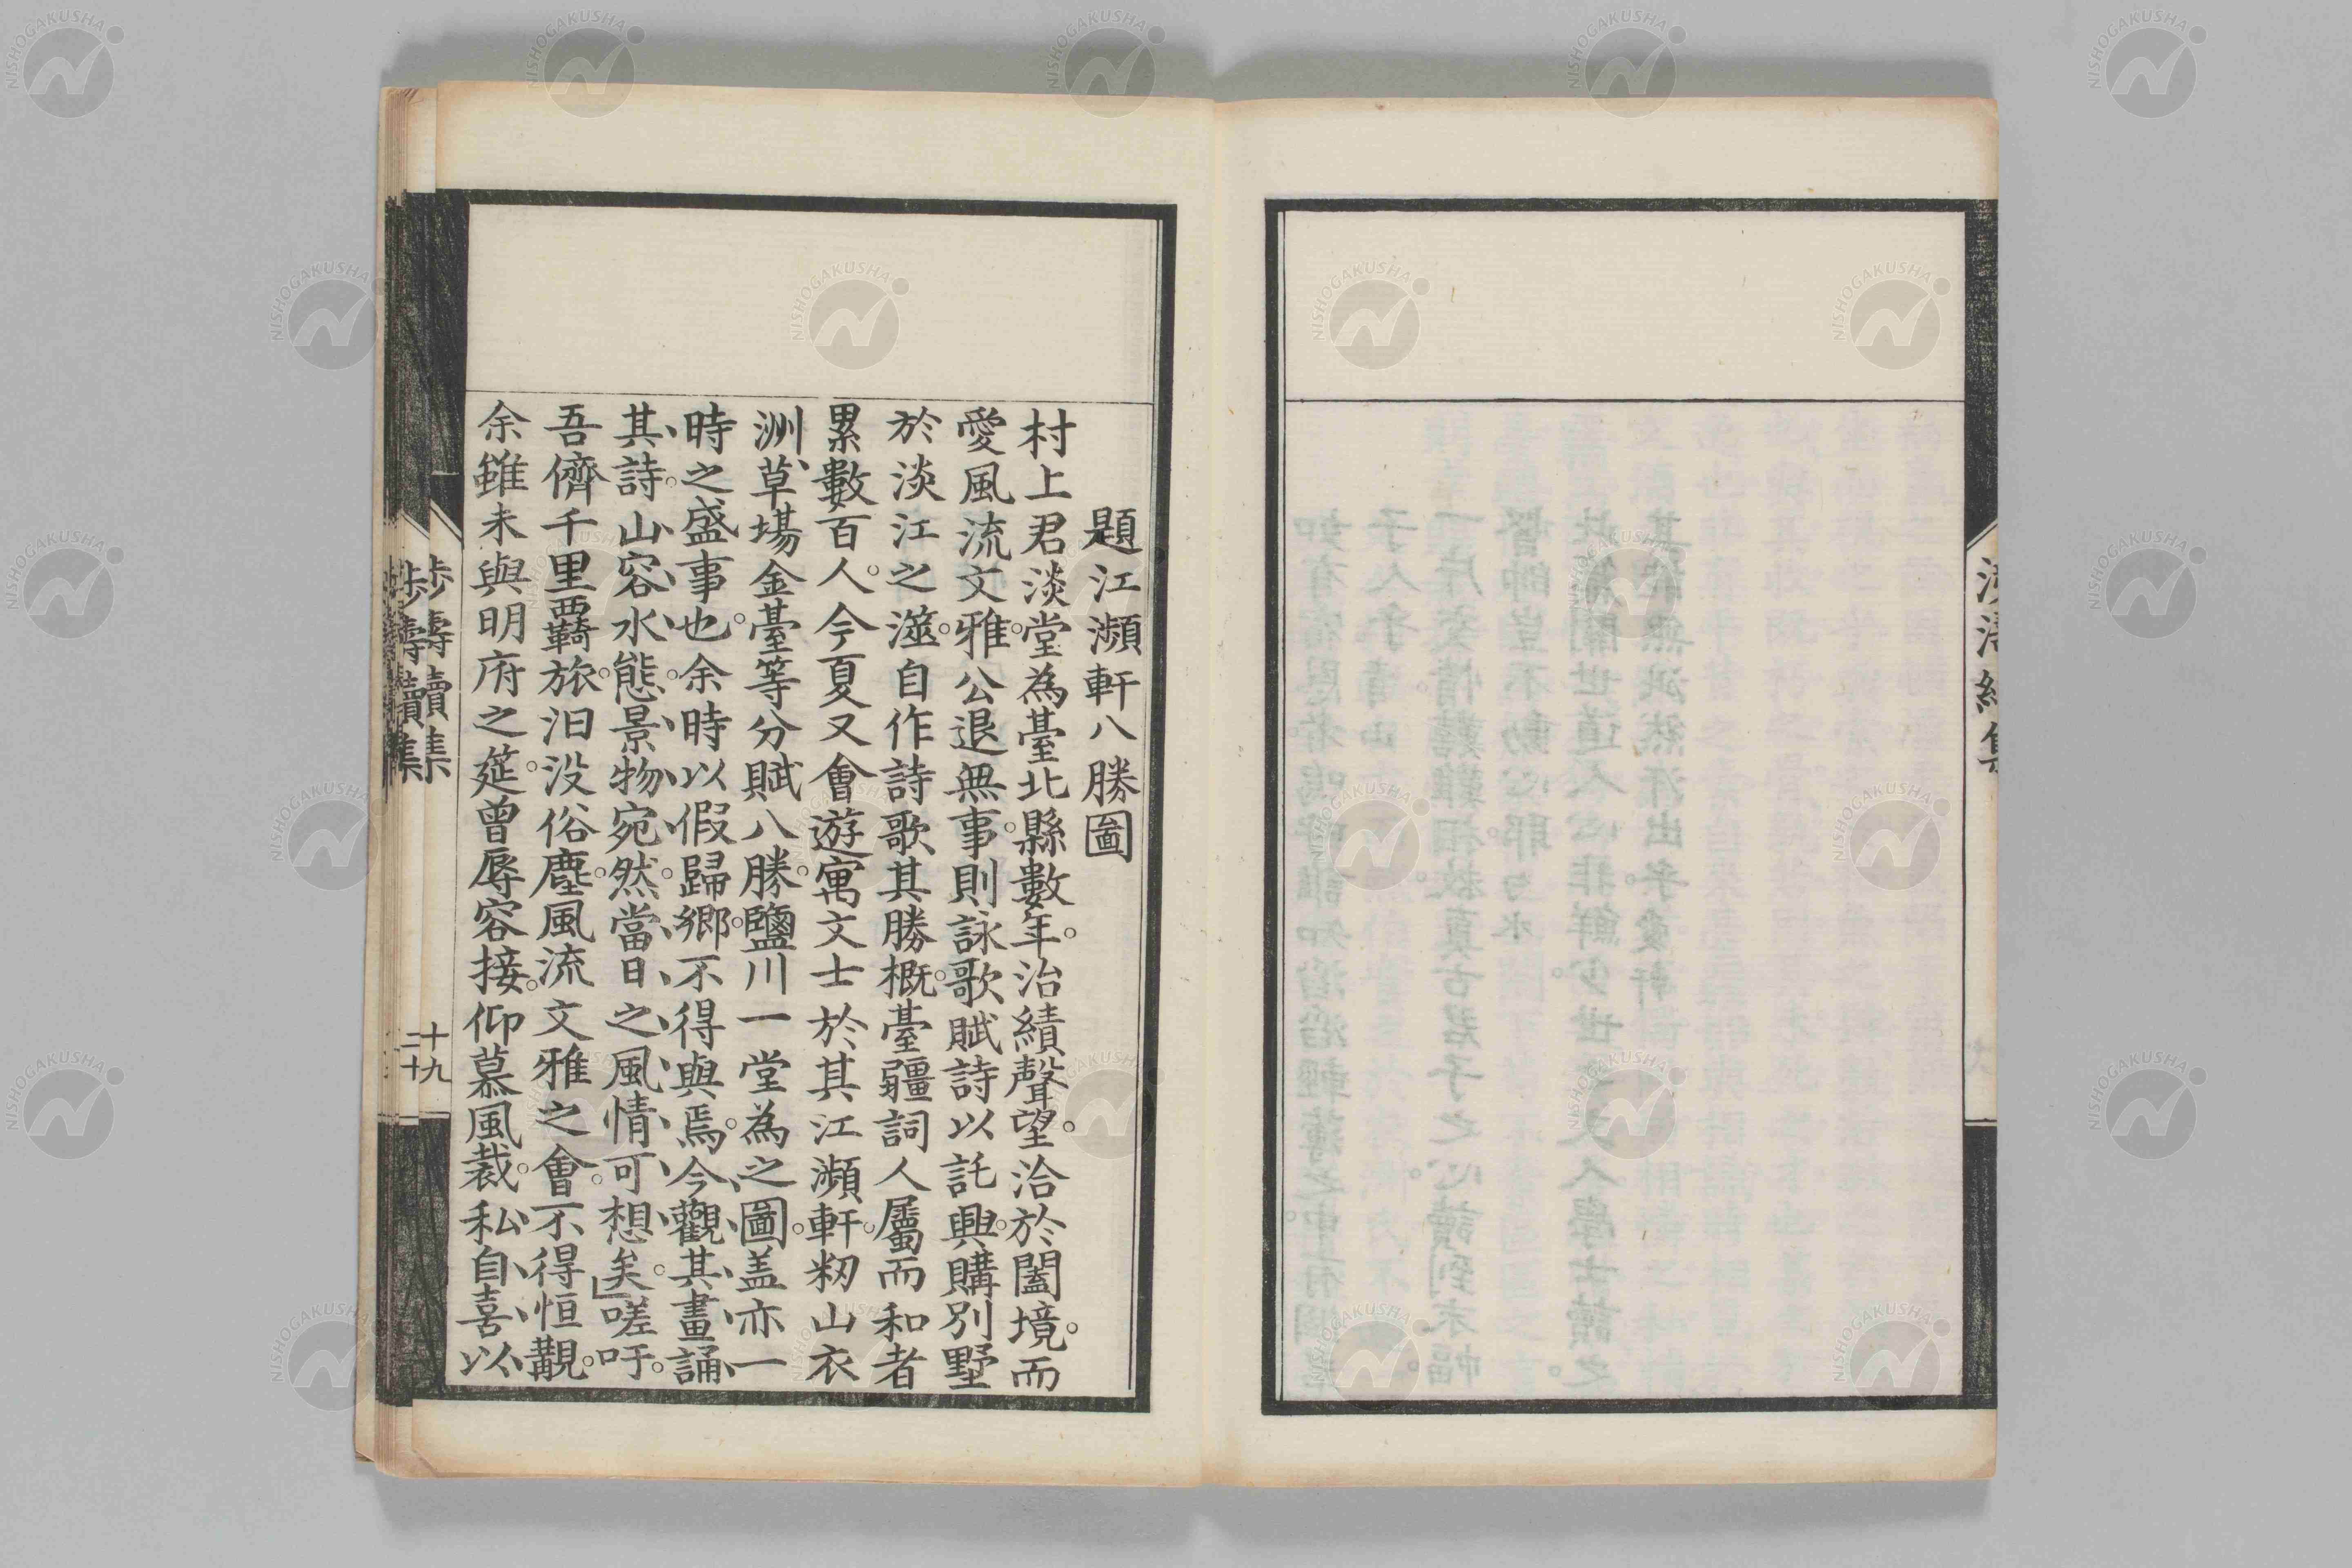 題江瀕軒八勝圖
村上君淡堂為臺北縣數年。治績聲望。洽於闔境。而
愛風流文雅。公退無事。則詠歌賦詩以託興。購別墅
於淡江之澨。自作詩歌其勝概。臺疆詞人屬而和者
累數百人。今夏又會遊寓文士於其江瀕軒。籾山衣
洲、草場金臺等分賦八勝。鹽川一堂為之圖。盖亦一
時之盛事也。余時以假歸鄉。不得與焉。今觀其畫誦
其詩。山容水態。景物宛然。當日之風情可想矣。」嗟吁。
吾儕千里覊旅。汩没俗塵。風流文雅之會。不得恒覯。
余雖未與明府之筵。曾辱容接。仰慕風裁。私自喜以
步濤續集
十九
步濤續集
二十
NISHOGAKUSHA